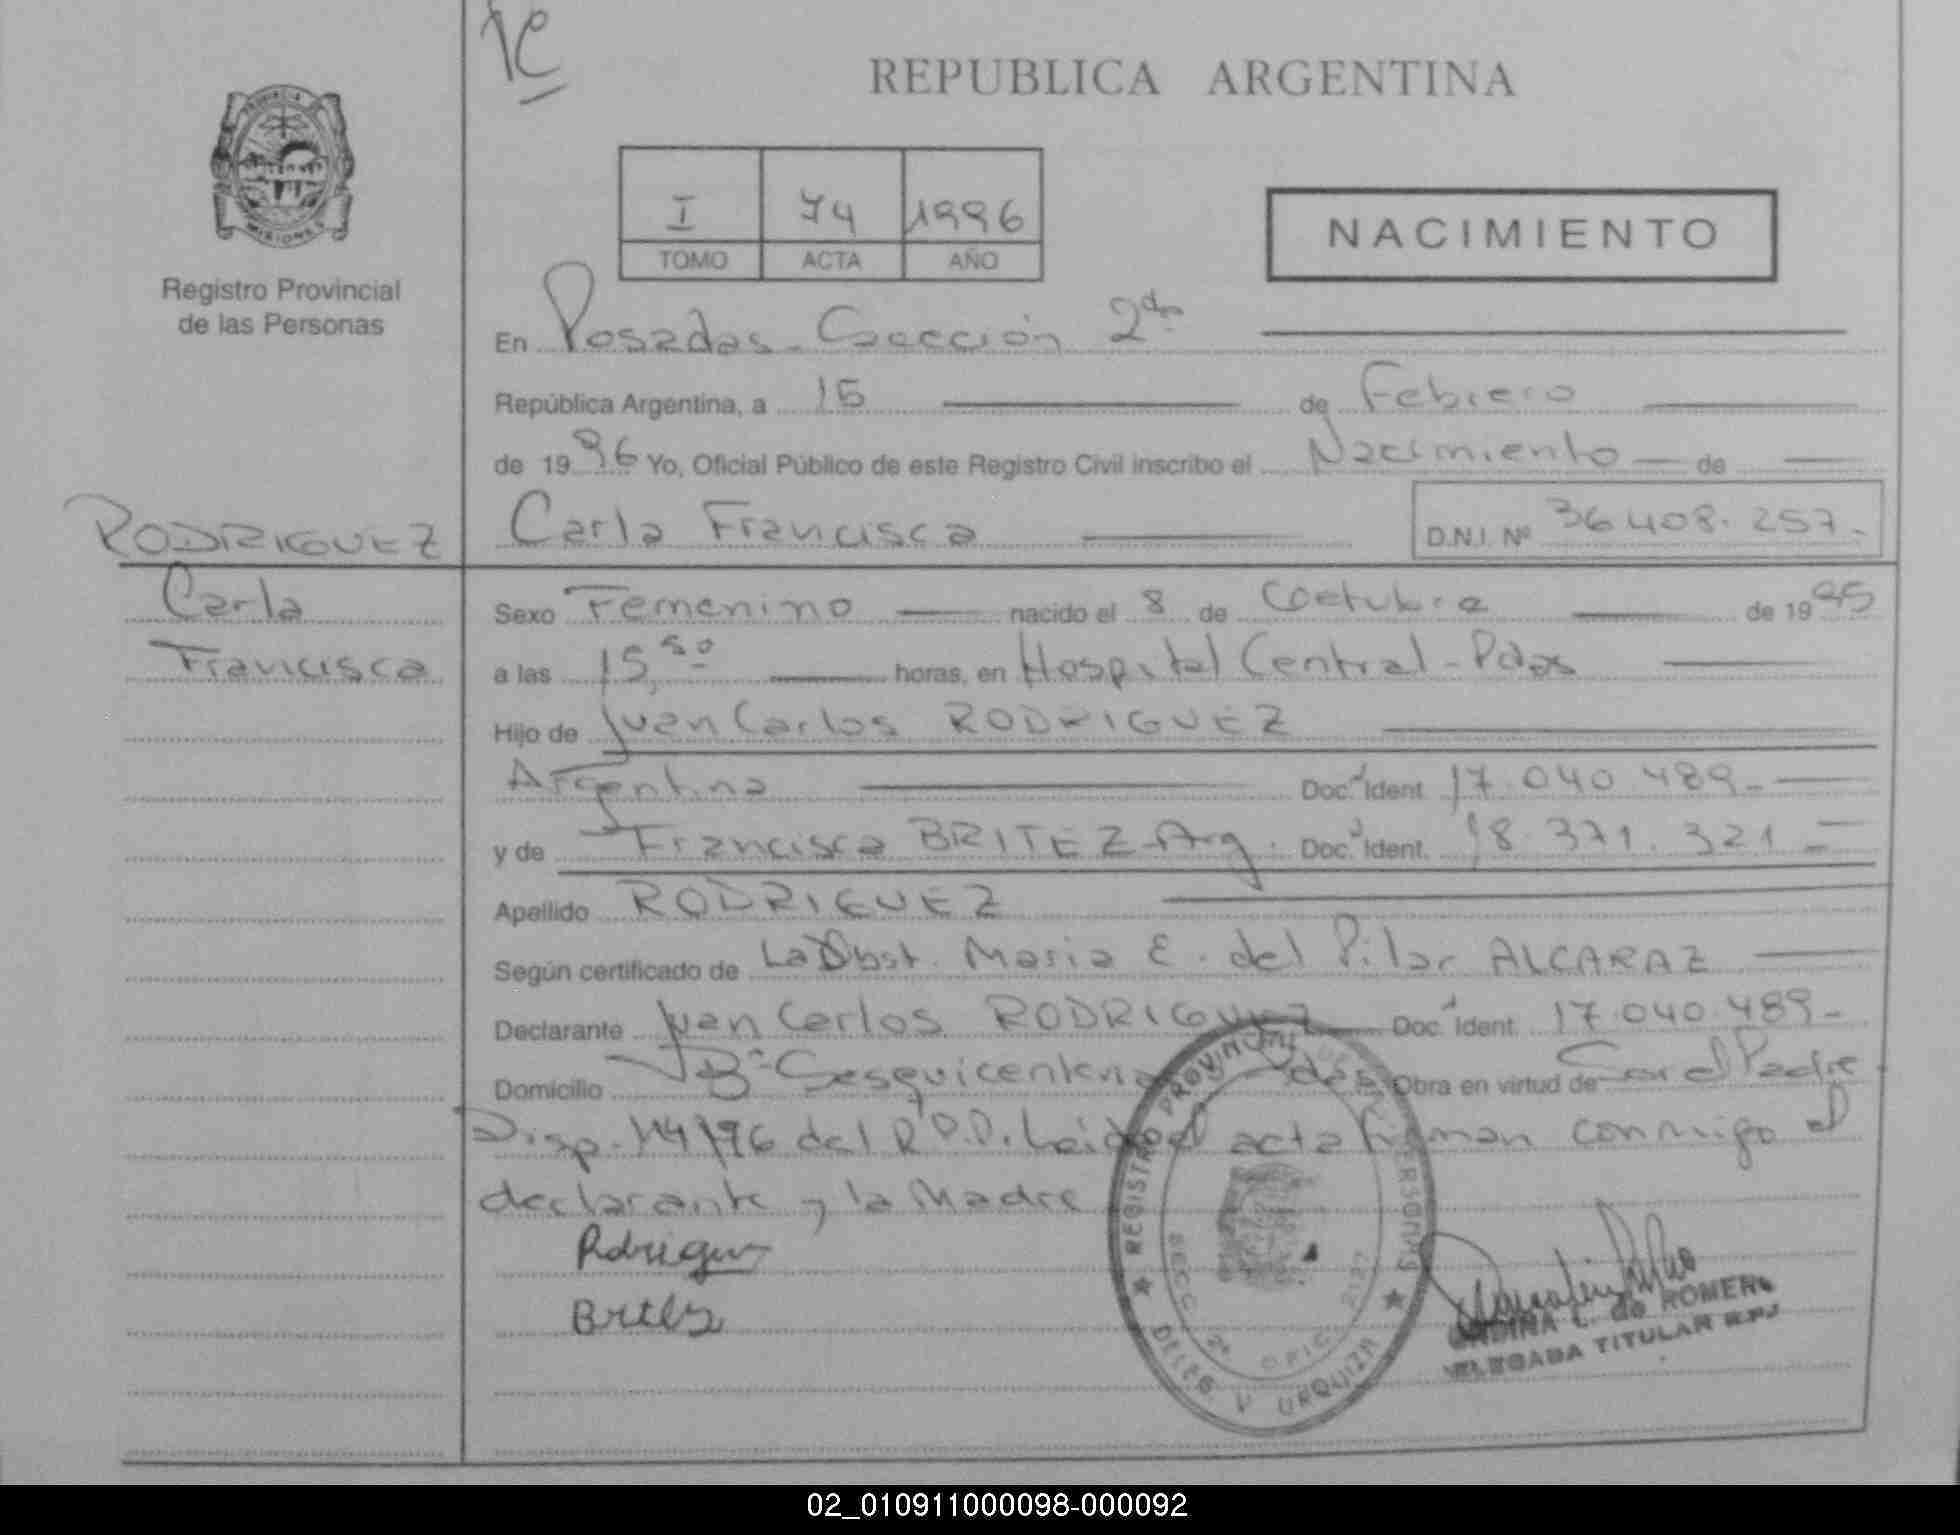 REPUBLICA ARGENTINA
PROVINCIA
MISIONES
Registro Provincial
de las Personas
I 74 1996
TOMO ACTA AÑO
NACIMIENTO
En Posadas - Sección 2da
República Argentina, a 15 de Febrero
de 1996 Yo, Oficial Público de este Registro Civil inscribo el Nacimiento de
RODRIGUEZ
Carla Francisca
D.N.I. Nº 36.408.257.-
Carla
Francisca
Sexo Femenino nacido el 8 de Octubre de 1995
a las 15,50 horas, en Hospital Central - Pdas
Hijo de Juan Carlos RODRIGUEZ
Argentina Doc. Ident. 17.040.489-
y de Francisca BRITEZ - Arg. Doc. Ident. 18.371.321-
Apellido RODRIGUEZ
Según certificado de La Obst. Maria E. del Pilar ALCARAZ
Declarante Juan Carlos RODRIGUEZ Doc. Ident. 17.040.489-
Domicilio Bº Sesquicentenario Pdas Obra en virtud de Ser el Padre.
Disp. 114/96 del R.P.P. Leido el acta firman conmigo el
declarante y la Madre
Rodriguez
REGISTRO PROVINCIAL DE LAS PERSONAS
SECC. 2ª OFIC.
DELEG. V. URQUIZA
L. de ROMERO
DELEGADA TITULAR R.P.P.
02_010911000098-000092